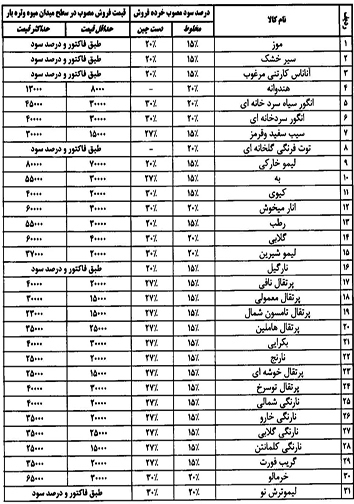 ردیف نام کالا درصد سود مصوب خرده فروش قیمت فروش مصوب در سطح میدان میوه وتره بار
مخلوط دست چین حداقل قیمت حداکثر قیمت
۱ موز ۱۵٪ ۲۰٪ طبق فاکتور و درصد سود
۲ سیر خشک ۱۵٪ ۲۰٪
۳ آناناس کارتنی مرغوب ۱۵٪ ۲۰٪
۴ هندوانه ۱۵٪ – ۸۰۰۰ ۱۳۰۰۰
۵ انگور سیاه سرد خانه ای ۱۵٪ ۳۰٪ ۳۰۰۰۰ ۴۵۰۰۰
۶ انگور سردخانه ای ۱۵٪ ۳۰٪ ۳۰۰۰۰ ۴۰۰۰۰
۷ سیب سفید وقرمز ۱۵٪ ۲۷٪ ۱۵۰۰۰ ۳۰۰۰۰
۸ توت فرنگی گلخانه ای ۱۵٪ – طبق فاکتور و درصد سود
۹ لیمو خارکی ۱۵٪ ۲۰٪ ۷۰۰۰۰ ۸۰۰۰۰
۱۰ به ۱۵٪ ۲۷٪ ۳۰۰۰۰ ۵۵۰۰۰
۱۱ کیوی ۱۵٪ ۳۰٪ ۲۰۰۰۰ ۴۰۰۰۰
۱۲ انار میخوش ۱۵٪ ۳۰٪ ۳۰۰۰۰ ۶۰۰۰۰
۱۳ رطب ۱۵٪ ۲۰٪ ۳۰۰۰۰ ۵۵۰۰۰
۱۴ گلابی ۱۵٪ ۳۰٪ ۴۰۰۰۰ ۶۰۰۰۰
۱۵ لیمو شیرین ۲۰٪ ۳۰٪ ۲۰۰۰۰ ۳۷۰۰۰
۱۶ نارگیل ۱۵٪ ۲۰٪ طبق فاکتور و درصد سود
۱۷ پرتقال نافی ۱۵٪ ۲۷٪ ۲۰۰۰۰ ۴۰۰۰۰
۱۸ پرتقال معمولی ۱۵٪ ۲۷٪ ۱۵۰۰۰ ۳۰۰۰۰
۱۹ پرتقال تامسون شمال ۱۵٪ ۲۷٪ ۱۵۰۰۰ ۲۳۰۰۰
۲۰ پرتقال هاملین ۱۵٪ ۲۷٪ ۲۵۰۰۰ ۳۵۰۰۰
۲۱ بکرایی ۱۵٪ ۲۷٪ ۲۰۰۰۰ ۴۰۰۰۰
۲۲ نارنج ۱۵٪ ۲۷٪ ۲۰۰۰۰ ۲۵۰۰۰
۲۳ پرتقال خوشه ای ۱۵٪ ۲۷٪ ۱۵۰۰۰ ۲۵۰۰۰
۲۴ پرتقال توسرخ ۱۵٪ ۲۷٪ ۳۰۰۰۰ ۴۰۰۰۰
۲۵ نارنگی شمالی ۱۵٪ ۲۷٪ ۲۰۰۰۰ ۴۰۰۰۰
۲۶ نارنگی خارو ۱۵٪ ۲۷٪ ۲۰۰۰۰ ۳۵۰۰۰
۲۷ نارنگی گلابی ۱۵٪ ۲۷٪ ۲۵۰۰۰ ۳۵۰۰۰
۲۸ نارنگی کلمانتن ۱۵٪ ۲۷٪ ۱۵۰۰۰ ۲۵۰۰۰
۲۹ گریپ فورت ۱۵٪ ۲۷٪ ۲۰۰۰۰ ۳۵۰۰۰
۳۰ خرمالو ۲۰٪ ۳۰٪ ۳۰۰۰۰ ۶۵۰۰۰
۳۱ لیموترش نو ۲۰٪ ۳۰٪ طبق فاکتور و درصد سود